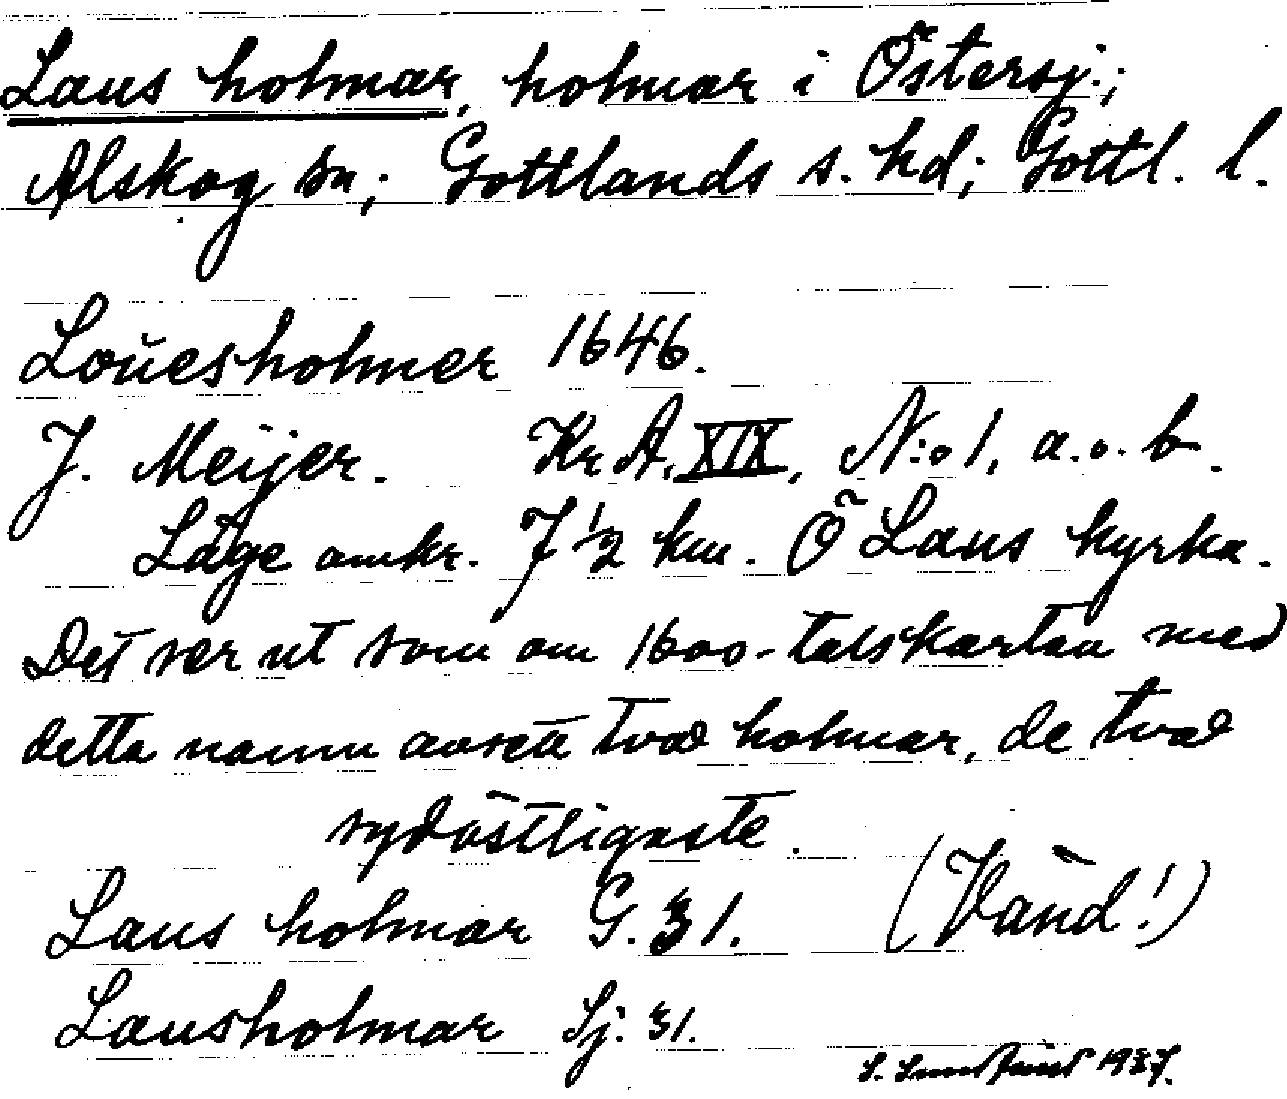 Laus holmar, holmar i Östersj.;
Alskog sn; Gottlands s. hd; Gottl. l.
Louesholmer 1646.
J. Meijer. Kr A, XIX, N:o 1, a. o. b.
Läge omkr. 7 1/2 km. Ö Laus kyrka.
Det ser ut som om 1600-talskartan med
detta namn avsett två holmar, de två
sydöstligaste.
Laus holmar G. 31. (Vänd!)
Lausholmar Sj. 31.
S. 1937.